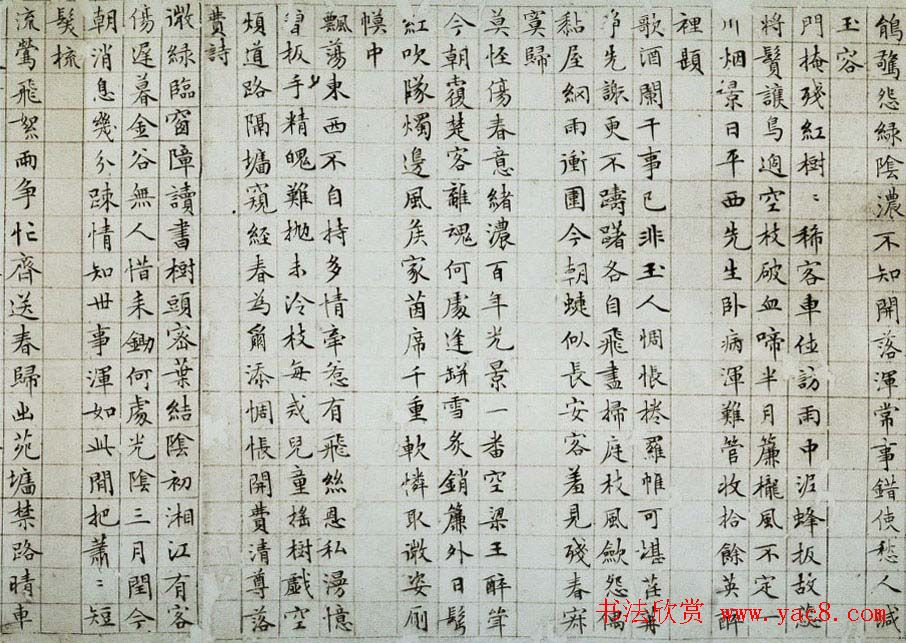 鵑驚怨綠陰濃不知開落渾常事錯使愁人減
玉容
門掩殘紅樹〻稀客車住訪雨中泥蜂扳故蕊
將鬚護鳥過空枝破血啼半月簾櫳風不定
川烟景日平西先生卧病渾難管收拾餘英醉
裡題
歌酒闌干事已非玉人惆悵捲羅帷可堪莊
净先謝更不躊躇各自飛盡掃庭枝風歛怨偶
黏屋網雨衝圍今朝蜨似長安客羞見殘春寂
寞歸
莫怪傷春意緒濃百年光景一番空梁王醉
今朝楚客離魂何處逢缾雪炙銷簾外日鬢
紅吹墜燭邊風矦家茵席千重軟憐取微姿廁
幙中
飄蕩東西不自持多情牽惹有飛絲恩私漫憶
曾扳手精魄難拋未冷枝每戒兒童搖樹戲空
煩道路隔墻窺經春為爾添惆悵開費清尊落
費詩
微綠臨窗障讀書樹頭容葉結陰初湘江有客
傷遲暮金谷無人惜耒鋤何處光陰三月閏今
朝消息幾分踈情知世事渾如此閒把蕭〻短
髮梳
流鶯飛絮兩爭忙齊送春歸出苑墻禁路晴車
书法欣赏 www.yac8.com